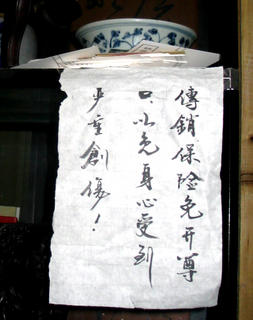 傳銷保险免开尊
口.以免身心受到
严重創傷!